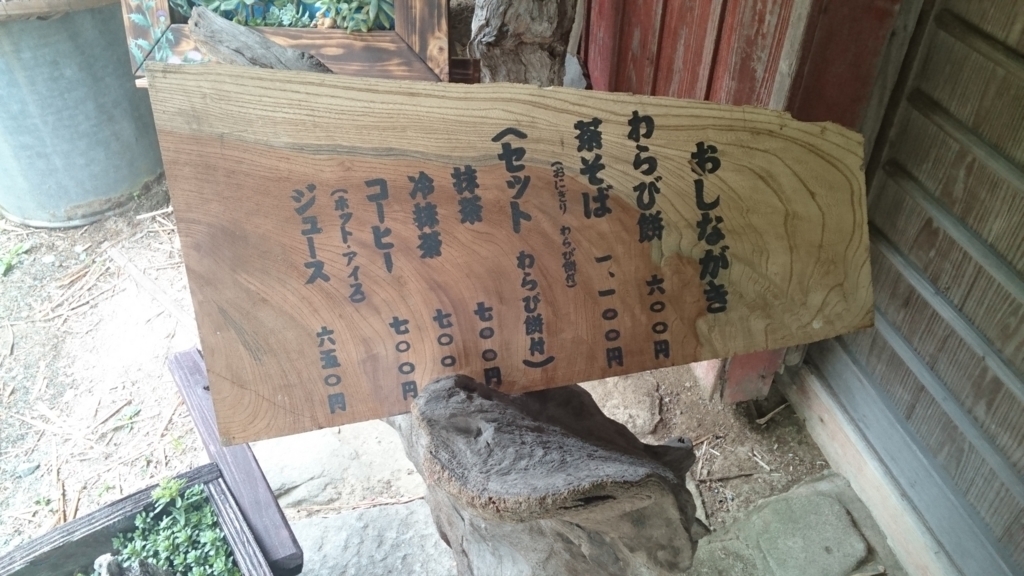 おしながき
わらび餅 六〇〇円
茶そば 一、一〇〇円
(おにぎり わらび餅付)
(セット わらび餅付)
抹茶 七〇〇円
冷抹茶 七〇〇
コーヒー 七〇〇円
(ホット・アイス)
ジュース 六五〇円